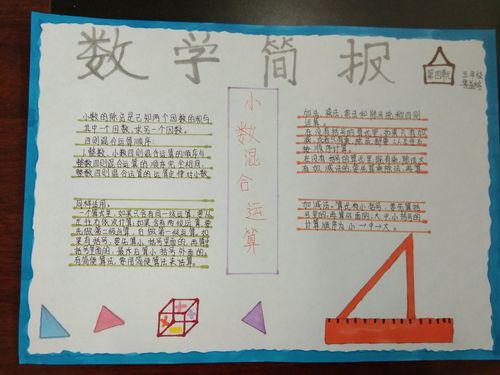 数学简报
第四期
五年级
小数混合运算
小数的除法是已知两个因数的积与
其中一个因数,求另一个因数。
四则混合运算顺序:
1整数、小数四则混合运算的顺序与
整数四则混合运算的顺序完全相同,
整数四则混合运算的运算定律对小数
同样适用。
一个算式里,如果只含有同一级运算,要从
左往右依次计算;如果含有两级运算,要
先做第二级运算,后做第一级运算;如
果有括号,要先算小括号里面的,再算
括号里面的,最后算小括号外面的。
有简便算法,要用简便算法来计算。
加法、减法、乘法和除法统称四则
运算。
在没有括号的算式里,如果只有加
减法或者只有乘、除法,都要从左往右
按顺序计算。
在没有括号的算式里,既有乘、除法又
有加、减法的,要先算乘除法,再算
加、减法。算式有小括号,要先算括
号里的,再算括号外的;大、中、小括号的
计算顺序为小→中→大。